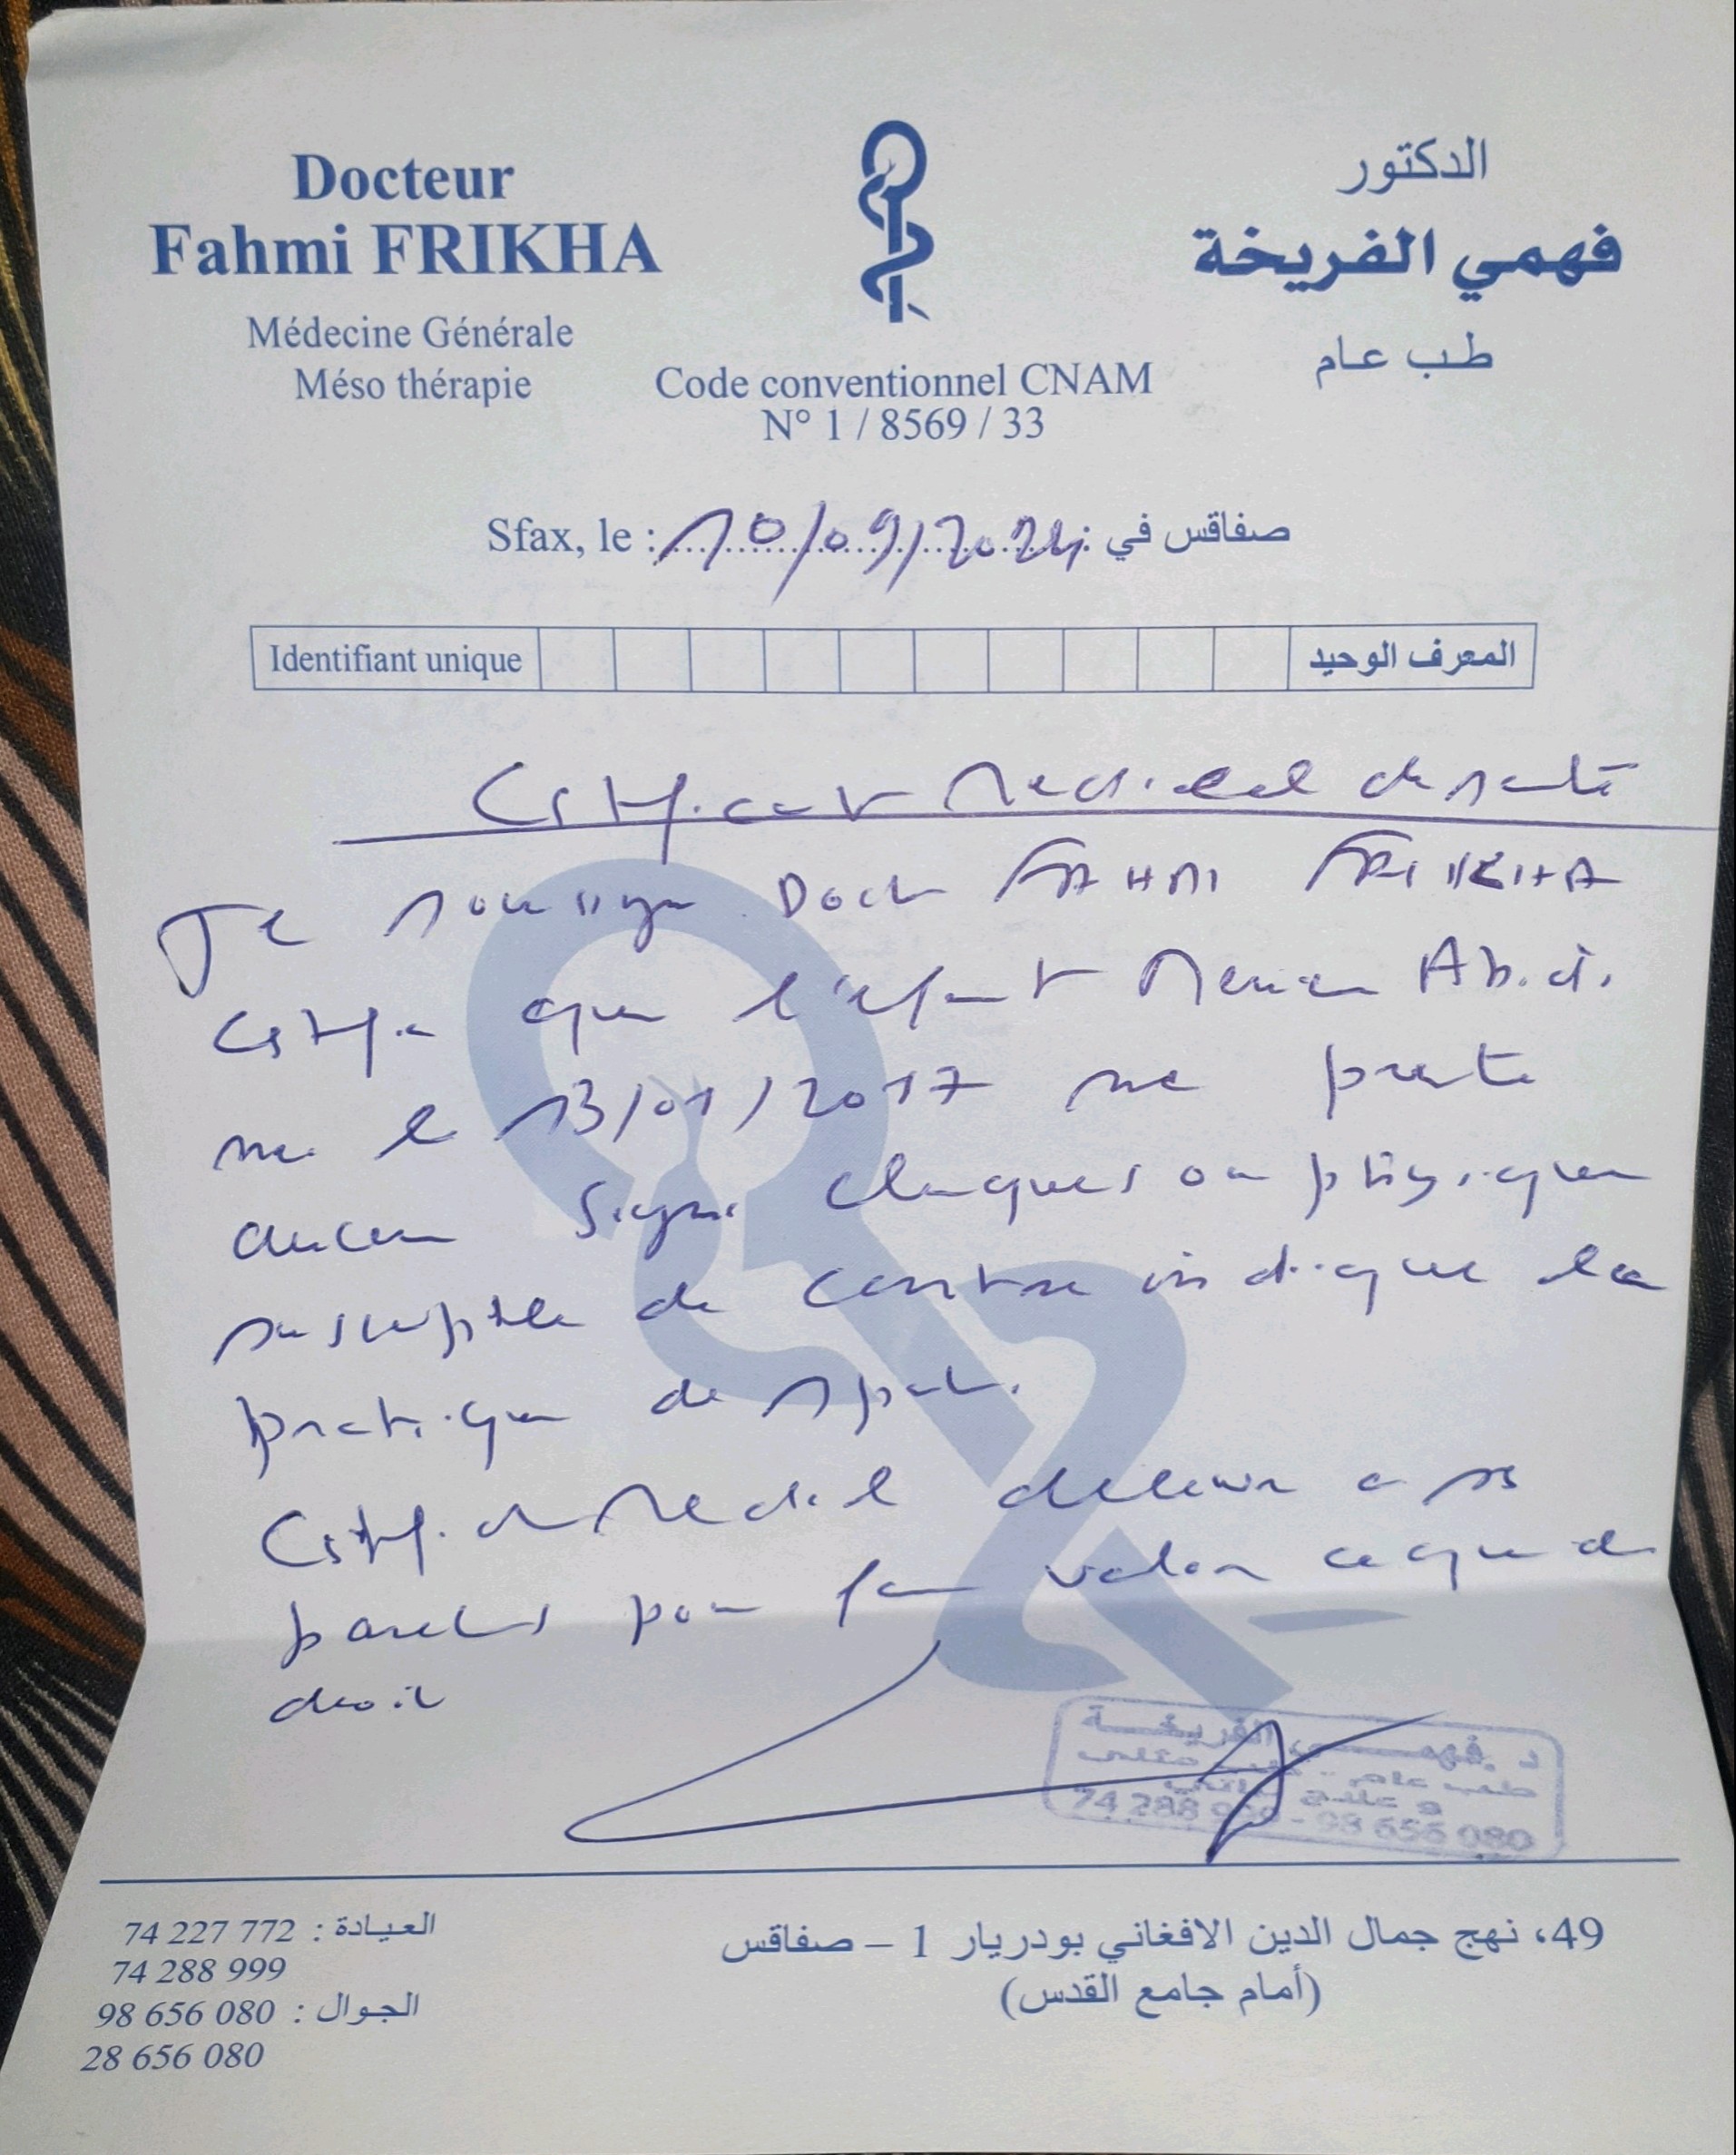 Docteur
Fahmi FRIKHA
Médecine Générale
Méso thérapie
Code conventionnel CNAM
N° 1 / 8569 / 33
الدكتور
فهمي الفريخة
طب عام
Sfax, le : 10/09/2024 صفاقس في
Identifiant unique المعرف الوحيد
Certificat Medical de santé
Je soussigne Doct FAHMI FRIKHA
certifie que l'enfant Abidi
ne le 13/01/2017 ne presente
aucun signe cliniques ou physiques
susceptible de contre indique la
pratique de sport.
Certificat Medical delivre a ses
parents pour faire valoir ce que de
droit
د. فهمي الفريخة
طب عام
74 288 999 - 98 656 080
العيادة : 74 227 772
74 288 999
الجوال : 98 656 080
28 656 080
49، نهج جمال الدين الافغاني بودريار 1 – صفاقس
(أمام جامع القدس)